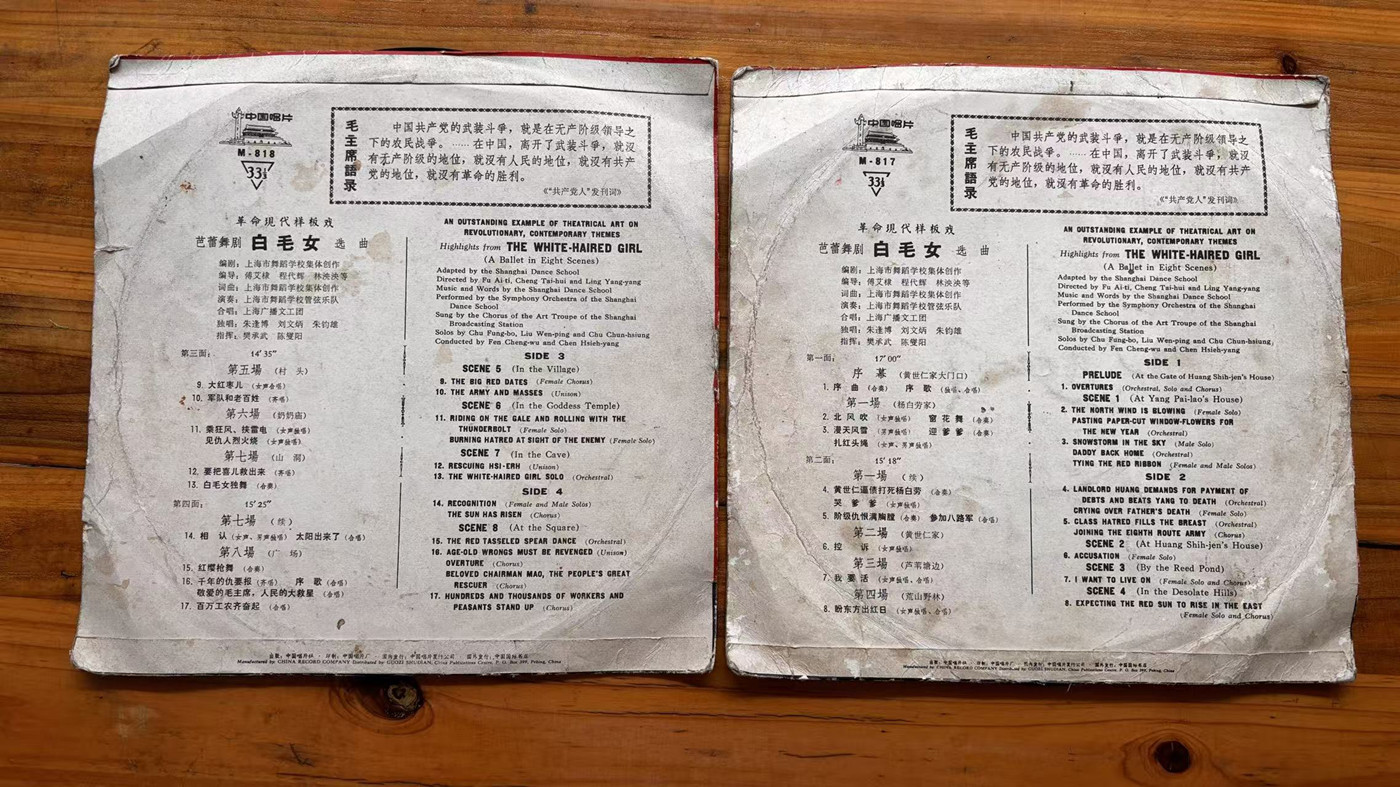 中国唱片
M-818
33⅓
毛主席語录
中国共产党的武装斗爭，就是在无产阶级领导之
下的农民战争。……在中国，离开了武装斗爭，就沒
有无产阶级的地位，就沒有人民的地位，就沒有共产
党的地位，就沒有革命的胜利。
《“共产党人”发刊词》
革命现代样板戏
芭蕾舞剧 白毛女 选曲
编剧：上海市舞蹈学校集体创作
编导：傅艾棣 程代辉 林泱泱等
词曲：上海市舞蹈学校集体创作
演奏：上海市舞蹈学校管弦乐队
合唱：上海广播文工团
独唱：朱逢博 刘文炳 朱钧雄
指挥：樊承武 陈燮阳
第三面： 14′35″
第五場 （村 头）
9. 大红枣儿 （女声合唱）
10. 军队和老百姓 （齐唱）
第六場 （奶奶庙）
11. 乘狂风、挟雷电 （女声独唱）
见仇人烈火烧 （女声独唱）
第七場 （山 洞）
12. 要把喜儿救出来 （齐唱）
13. 白毛女独舞 （合奏）
第四面： 15′25″
第七場 （续）
14. 相 认 （女声、男声独唱） 太阳出来了 （合唱）
第八場 （广 场）
15. 红缨枪舞 （合奏）
16. 千年的仇要报 （齐唱） 序 歌 （合唱）
敬爱的毛主席，人民的大救星 （合唱）
17. 百万工农齐奋起 （合唱）
AN OUTSTANDING EXAMPLE OF THEATRICAL ART ON
REVOLUTIONARY, CONTEMPORARY THEMES
Highlights from THE WHITE-HAIRED GIRL
(A Ballet in Eight Scenes)
Adapted by the Shanghai Dance School
Directed by Fu Ai-ti, Cheng Tai-hui and Ling Yang-yang
Music and Words by the Shanghai Dance School
Performed by the Symphony Orchestra of the Shanghai
Dance School
Sung by the Chorus of the Art Troupe of the Shanghai
Broadcasting Station
Solos by Chu Fung-bo, Liu Wen-ping and Chu Chun-hsiung
Conducted by Fen Cheng-wu and Chen Hsieh-yang
SIDE 3
SCENE 5 (In the Village)
9. THE BIG RED DATES (Female Chorus)
10. THE ARMY AND MASSES (Unison)
SCENE 6 (In the Goddess Temple)
11. RIDING ON THE GALE AND ROLLING WITH THE
THUNDERBOLT (Female Solo)
BURNING HATRED AT SIGHT OF THE ENEMY (Female Solo)
SCENE 7 (In the Cave)
12. RESCUING HSI-ERH (Unison)
13. THE WHITE-HAIRED GIRL SOLO (Orchestral)
SIDE 4
14. RECOGNITION (Female and Male Solos)
THE SUN HAS RISEN (Chorus)
SCENE 8 (At the Square)
15. THE RED TASSELED SPEAR DANCE (Orchestral)
16. AGE-OLD WRONGS MUST BE REVENGED (Unison)
OVERTURE (Chorus)
BELOVED CHAIRMAN MAO, THE PEOPLE'S GREAT
RESCUER (Chorus)
17. HUNDREDS AND THOUSANDS OF WORKERS AND
PEASANTS STAND UP (Chorus)
出版：中国唱片社 · 印制：中国唱片厂 国内发行：中国唱片发行公司 国外发行：中国国际书店
Manufactured by CHINA RECORD COMPANY Distributed by GUOZI SHUDIAN, China Publications Centre, P. O. Box 399, Peking, China
中国唱片
M-817
33⅓
毛主席語录
中国共产党的武装斗爭，就是在无产阶级领导之
下的农民战争。……在中国，离开了武装斗爭，就沒
有无产阶级的地位，就沒有人民的地位，就沒有共产
党的地位，就沒有革命的胜利。
《“共产党人”发刊词》
革命现代样板戏
芭蕾舞剧 白毛女 选曲
编剧：上海市舞蹈学校集体创作
编导：傅艾棣 程代辉 林泱泱等
词曲：上海市舞蹈学校集体创作
演奏：上海市舞蹈学校管弦乐队
合唱：上海广播文工团
独唱：朱逢博 刘文炳 朱钧雄
指挥：樊承武 陈燮阳
第一面： 17′00″
序 幕 （黄世仁家大门口）
1. 序 曲 （合奏） 序 歌 （独唱、合唱）
第一場 （杨白劳家）
2. 北 风 吹 （女声独唱） 窗 花 舞 （合奏）
3. 漫天风雪 （男声独唱） 迎 爹 爹 （合奏）
扎红头绳 （女声、男声独唱）
第二面： 15′18″
第一場 （续）
4. 黄世仁逼债打死杨白劳 （合奏）
哭 爹 爹 （女声独唱）
5. 阶级仇恨满胸膛 （合奏） 参加八路军 （合唱）
第二場 （黄世仁家）
6. 控 诉 （女声独唱）
第三場 （芦苇塘边）
7. 我 要 活 （女声独唱、合唱）
第四場 （荒山野林）
8. 盼东方出红日 （女声独唱、合唱）
AN OUTSTANDING EXAMPLE OF THEATRICAL ART ON
REVOLUTIONARY, CONTEMPORARY THEMES
Highlights from THE WHITE-HAIRED GIRL
(A Ballet in Eight Scenes)
Adapted by the Shanghai Dance School
Directed by Fu Ai-ti, Cheng Tai-hui and Ling Yang-yang
Music and Words by the Shanghai Dance School
Performed by the Symphony Orchestra of the Shanghai
Dance School
Sung by the Chorus of the Art Troupe of the Shanghai
Broadcasting Station
Solos by Chu Fung-bo, Liu Wen-ping and Chu Chun-hsiung
Conducted by Fen Cheng-wu and Chen Hsieh-yang
SIDE 1
PRELUDE (At the Gate of Huang Shih-jen's House)
1. OVERTURES (Orchestral, Solo and Chorus)
SCENE 1 (At Yang Pai-lao's House)
2. THE NORTH WIND IS BLOWING (Female Solo)
PASTING PAPER-CUT WINDOW-FLOWERS FOR
THE NEW YEAR (Orchestral)
3. SNOWSTORM IN THE SKY (Male Solo)
DADDY BACK HOME (Orchestral)
TYING THE RED RIBBON (Female and Male Solos)
SIDE 2
4. LANDLORD HUANG DEMANDS FOR PAYMENT OF
DEBTS AND BEATS YANG TO DEATH (Orchestral)
CRYING OVER FATHER'S DEATH (Female Solo)
5. CLASS HATRED FILLS THE BREAST (Orchestral)
JOINING THE EIGHTH ROUTE ARMY (Chorus)
SCENE 2 (At Huang Shih-jen's House)
6. ACCUSATION (Female Solo)
SCENE 3 (By the Reed Pond)
7. I WANT TO LIVE ON (Female Solo and Chorus)
SCENE 4 (In the Desolate Hills)
8. EXPECTING THE RED SUN TO RISE IN THE EAST
(Female Solo and Chorus)
出版：中国唱片社 · 印制：中国唱片厂 国内发行：中国唱片发行公司 国外发行：中国国际书店
Manufactured by CHINA RECORD COMPANY Distributed by GUOZI SHUDIAN, China Publications Centre, P. O. Box 399, Peking, China